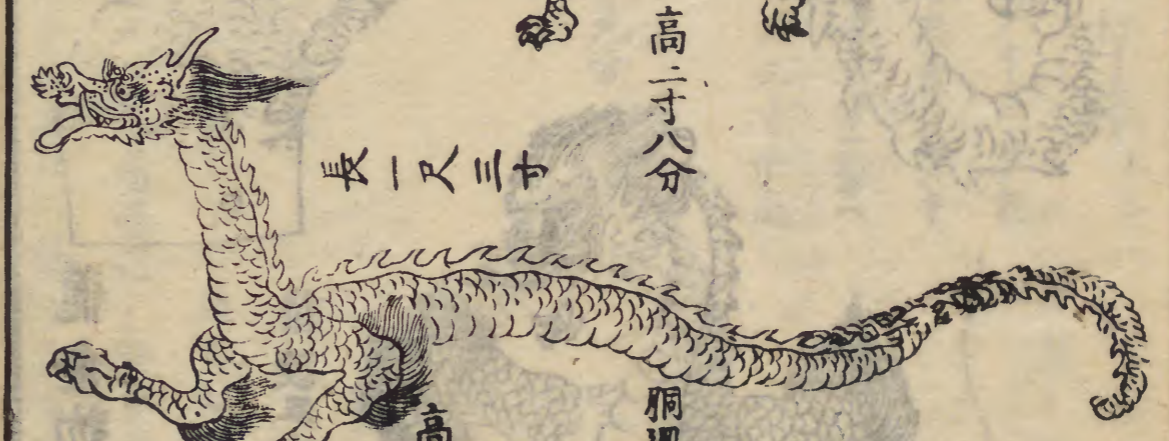 高二寸八分
長一尺三寸
胴
高